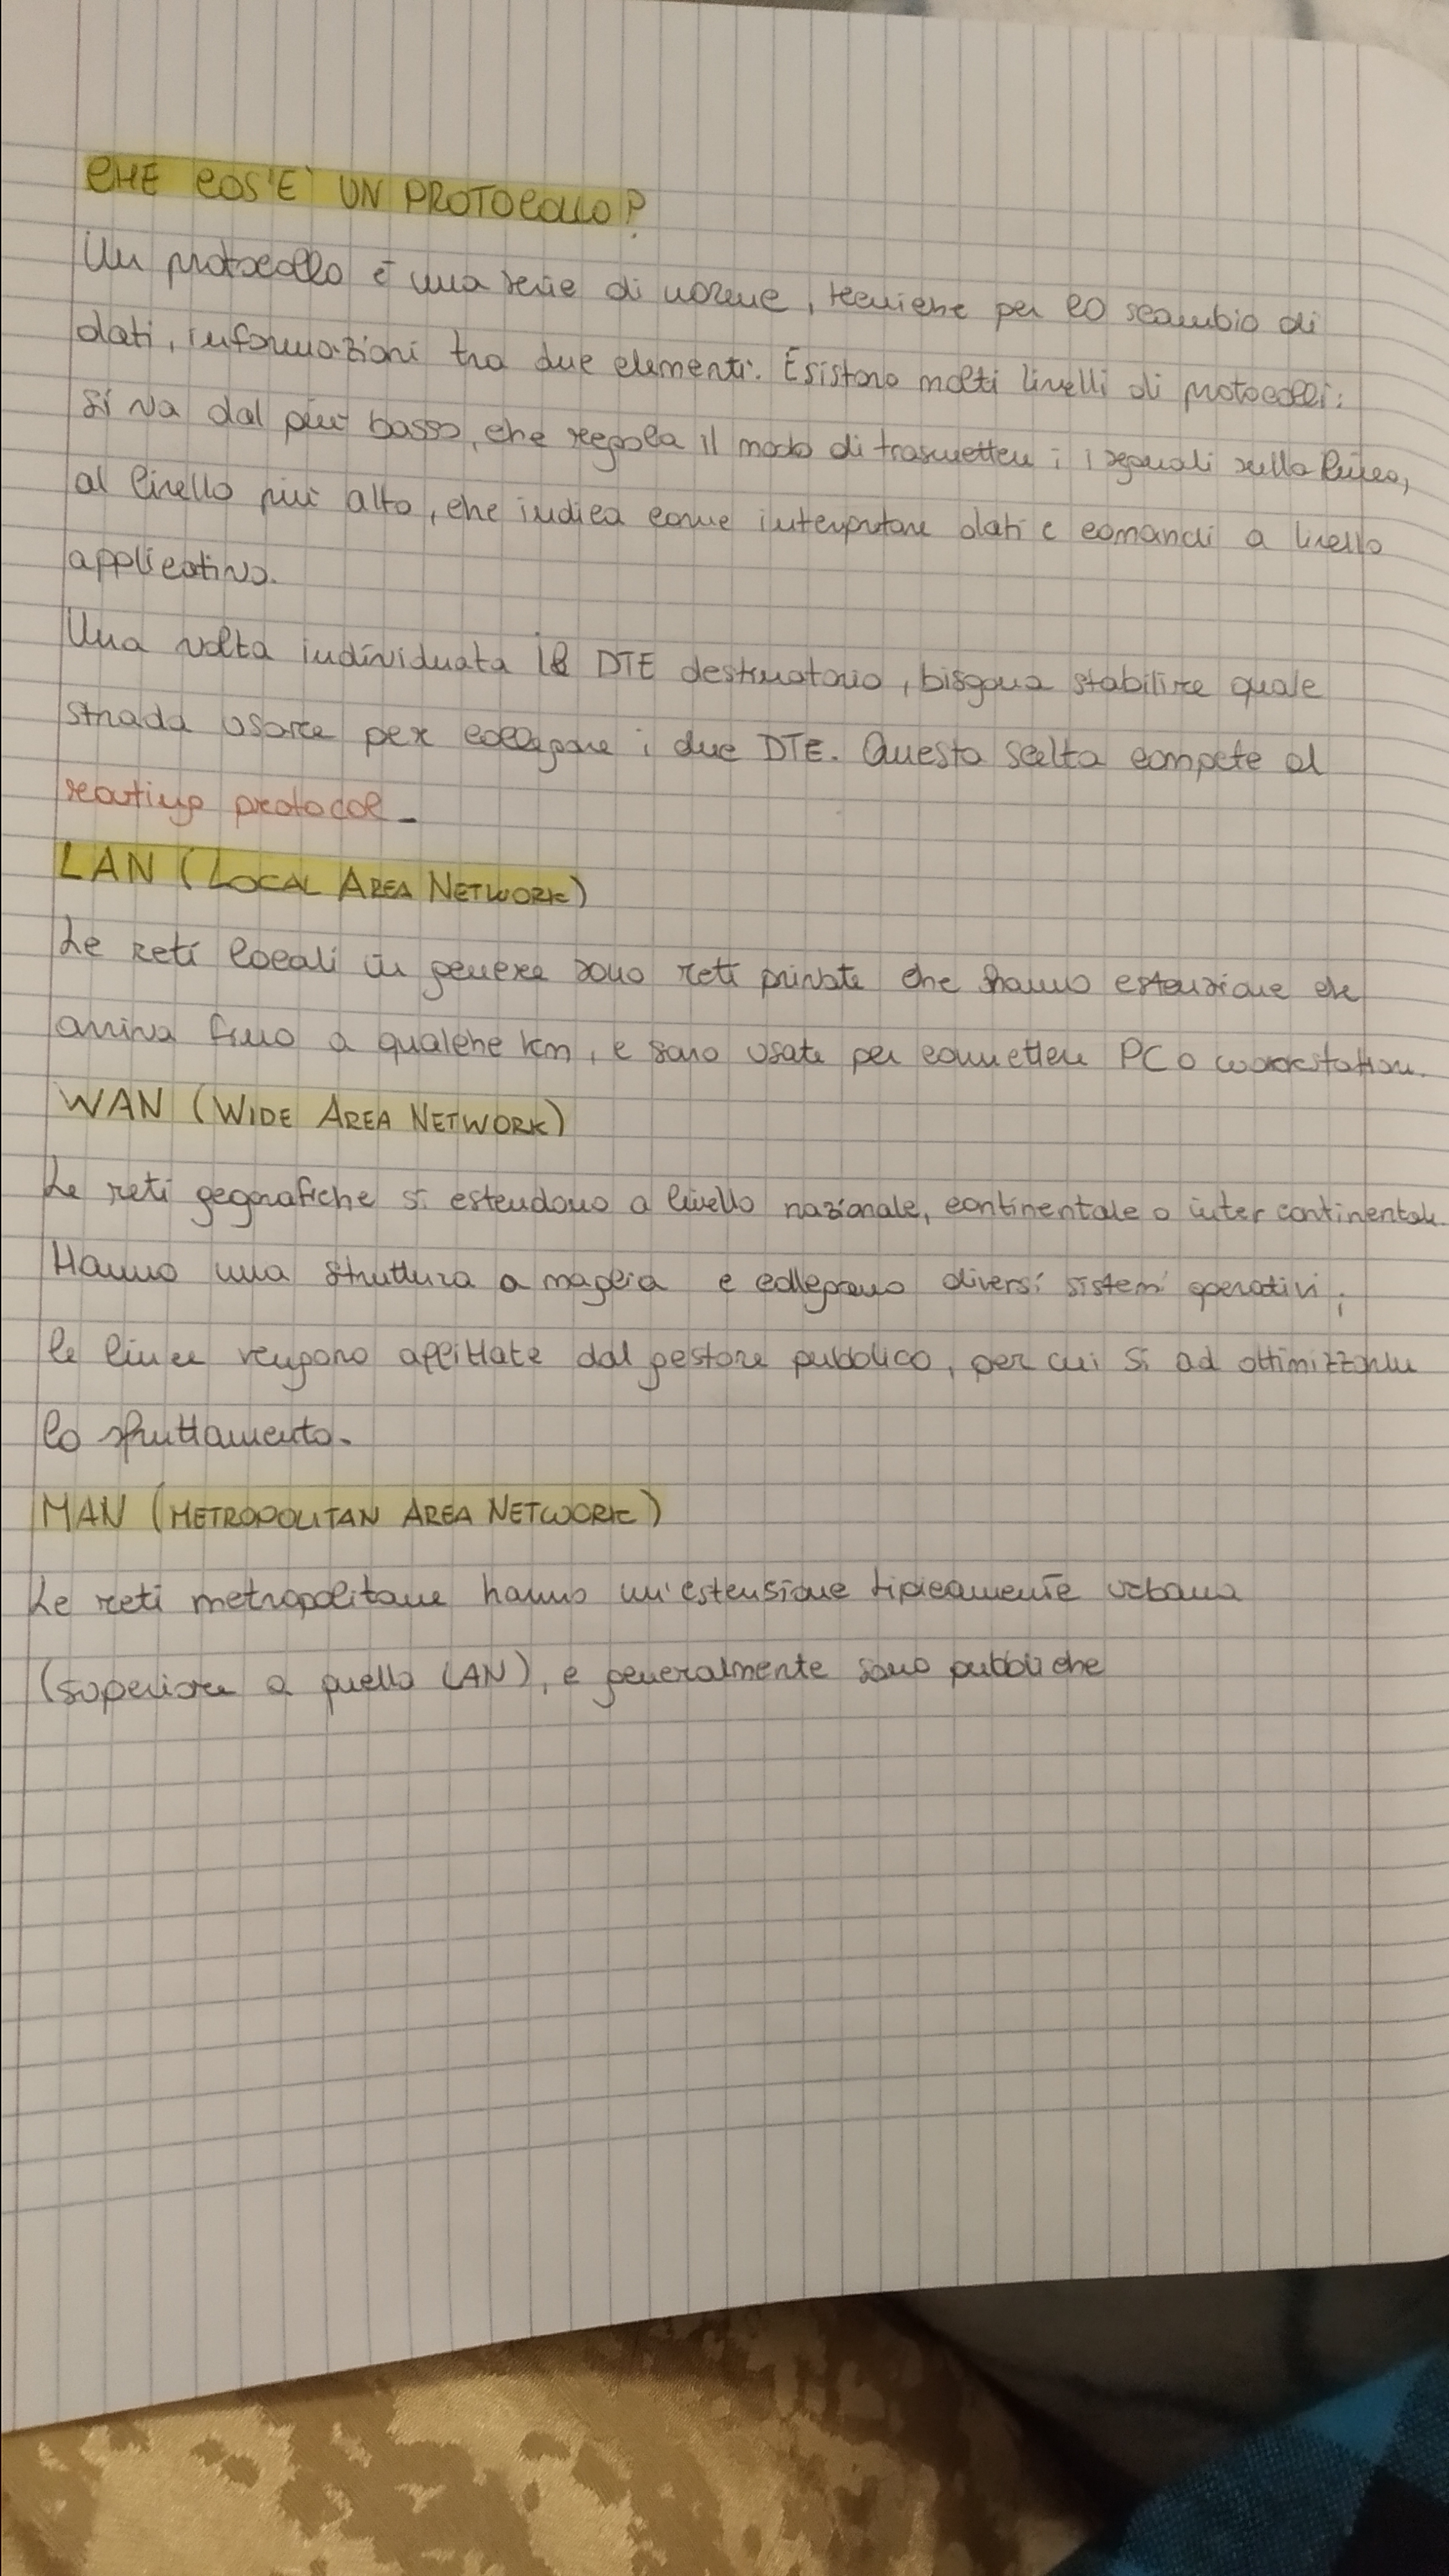 CHE COS'E' UN PROTOCOLLO?
Un protocollo è una serie di norme, tecniche per lo scambio di
dati, informazioni tra due elementi. Esistono molti livelli di protocolli:
si va dal più basso, che regola il modo di trasmettere i i segnali sulla linea,
al livello più alto, che indica come interpretare dati e comandi a livello
applicativo.
Una volta individuata il DTE destinatario, bisogna stabilire quale
strada usare per collegare i due DTE. Questa scelta compete al
routing protocol.
LAN (LOCAL AREA NETWORK)
Le reti locali in genere sono reti private che hanno estensione che
arriva fino a qualche km, e sono usate per connettere PC o workstation.
WAN (WIDE AREA NETWORK)
Le reti geografiche si estendono a livello nazionale, continentale o inter continentale.
Hanno una struttura a maglia e collegano diversi sistemi operativi;
le linee vengono affittate dal gestore pubblico, per cui si ad ottimizzarlu
lo sfruttamento.
MAN (METROPOLITAN AREA NETWORK)
Le reti metropolitane hanno un'estensione tipicamente urbana
(superiore a quella LAN), e generalmente sono pubbliche